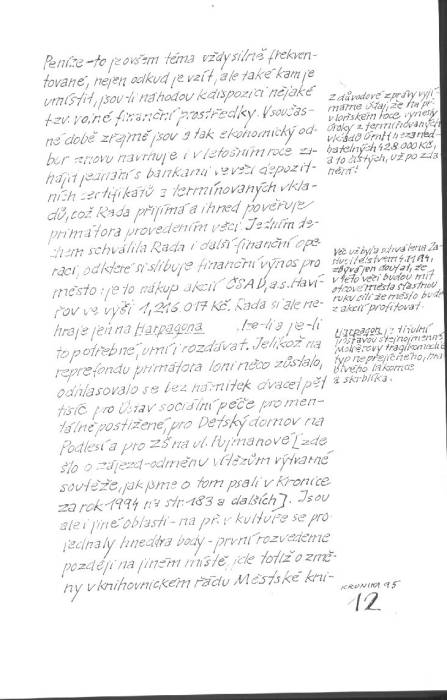 Peníze - to je ovšem téma vždy silně frekven-
tované, nejen odkud je vzít, ale také kam je
umístit, jsou-li náhodou k dispozici nějaké
t.zv. volné finanční prostředky. V součas-
né době zřejmě jsou a tak ekonomický od-
bor znovu navrhuje i v letošním roce za-
hájit jednání s bankami ve věci depozit-
ních certifikátů a termínovaných vkla-
dů, což Rada přijímá a ihned pověřuje
primátora provedením věci. Jedním de-
chem schválila Rada i další finanční ope-
raci, od které si slibuje finanční výnos pro
město: je to nákup akcií ČSAD, a.s. Haví-
řov ve výši 1,216.017 Kč. Rada si ale ne-
hraje jen na Harpagona je-li a je-li
to potřebné, umí i rozdávat. Jelikož na
reprefondu primátora loni něco zůstalo,
odhlasovalo se bez námitek dvacet pět
tisíc pro Ústav sociální péče pro men-
tálně postižené, pro Dětský domov na
Podlesí a pro ZŠ na ul. Pujmanové [zde
šlo o zájezd-odměnu vítězům výtvarné
soutěže, jak jsme o tom psali v Kronice
za rok 1994 na str. 183 a dalších]. Jsou
ale i jiné oblasti - na př. v kultuře se pro-
jednaly hned dva body - první rozvedeme
později na jiném místě, jde totiž o změ-
ny v knihovnickém řádu Městské kni-
Z důvodové zprávy vyjí-
máme údaj, že na př.
v loňském roce vynesly
úroky z termínovaných
vkladů
batelných 428.000 Kč,
a to čistých, už po zda-
nění!
Věc už byla schválena Za-
stupitelstvem
zbývá jen doufat, že
v této věci budou mít
otcové města šťastnou
ruku čili že město bude
z akcií profitovat.
Harpagon je titulní
postavou stejnojmenné
Molièrovy tragikomedie
typ nepříjemného,
bivého lakomce
a skrblíka.
KRONIKA 95
12